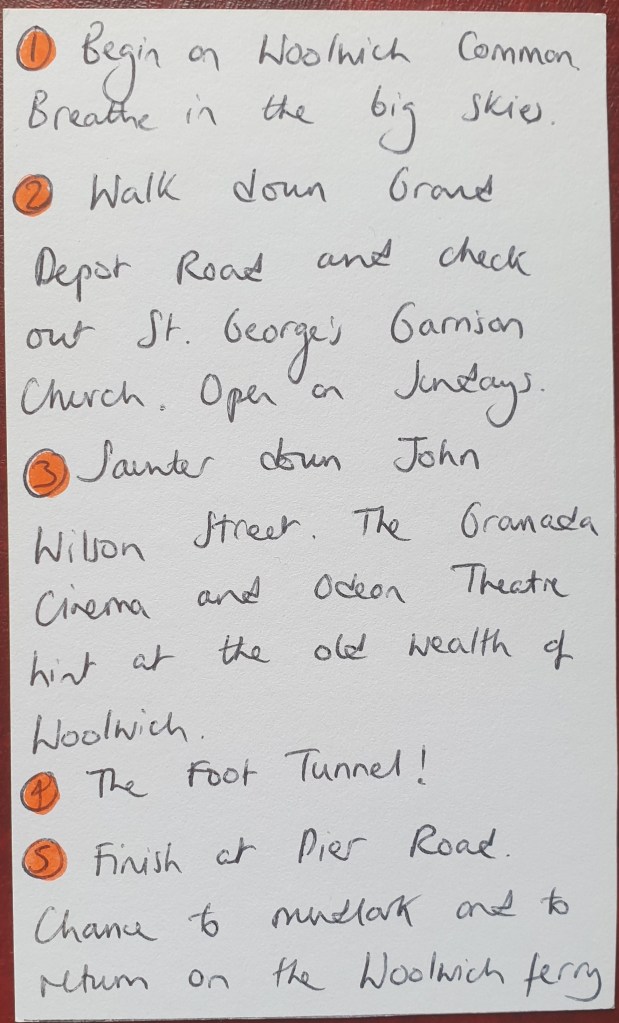 1 Begin on Woolwich Common.
Breathe in the big skies.
2 Walk down Grand
Depot Road and check
out St. George's Garrison
Church. Open on Sundays.
3 Saunter down John
Wilson Street. The Granada
Cinema and Odeon Theatre
hint at the old wealth of
Woolwich.
4 The Foot Tunnel!
5 Finish at Pier Road.
Chance to mudlark and to
return on the Woolwich ferry